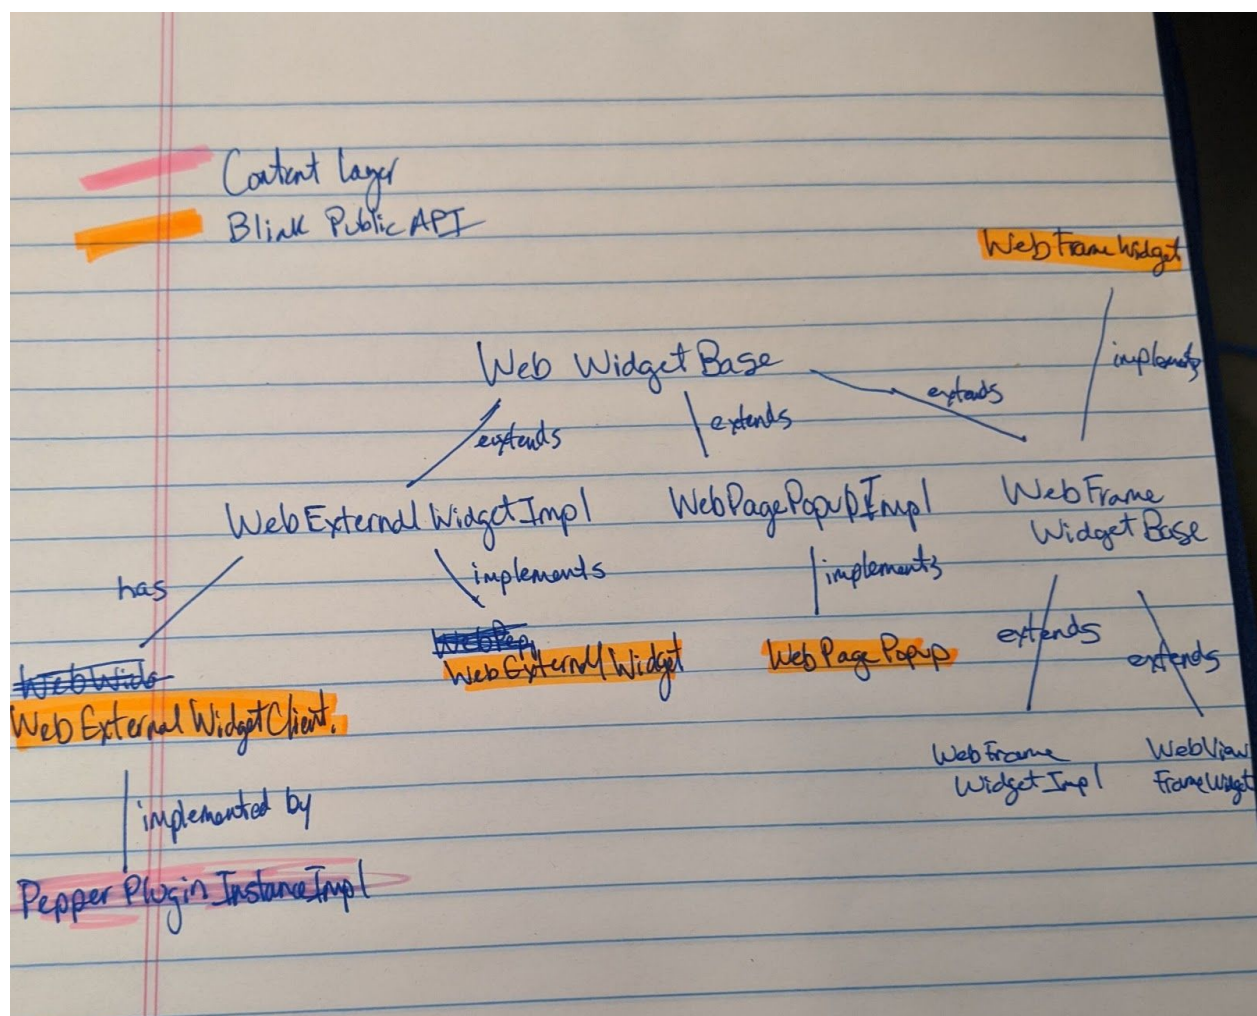 Content layer
Blink Public API
WebFrameWidget
implements
Web WidgetBase
extends
extends
extends
WebExternalWidgetImpl
WebPagePopupImpl
WebFrame
WidgetBase
has
implements
implements
extends
extends
WebWide
WebPep
WebExternalWidget
WebPagePopup
WebExternalWidgetClient.
WebFrame
WidgetImpl
WebView
FrameWidget
implemented by
Pepper Plugin InstanceImpl